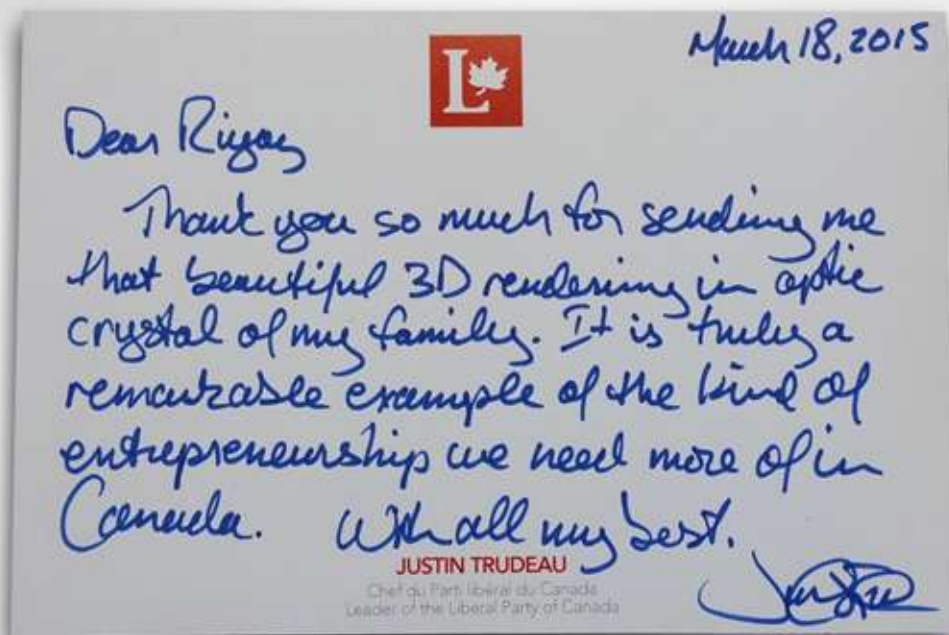 March 18, 2015
L
Dear Riyaz
Thank you so much for sending me
that beautiful 3D rendering in optic
crystal of my family. It is truly a
remarkable example of the kind of
entrepreneurship we need more of in
Canada. With all my best.
JUSTIN TRUDEAU
Chef du Parti libéral du Canada
Leader of the Liberal Party of Canada